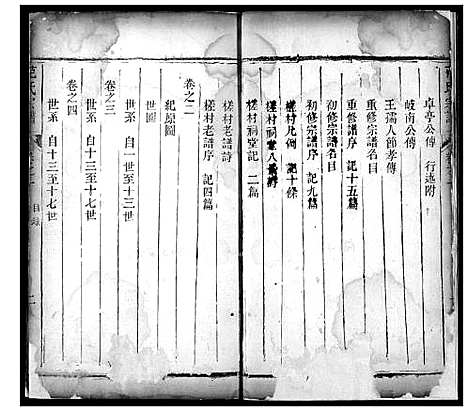 卓亭公傳 行述附
岐南公傳
王孺人節孝傳
重修宗譜名目
重修譜序 記十五篇
初修宗譜名目
初修宗譜序 記九篇
槎村凡例 記十條
槎村祠堂八景詩
槎村祠堂記 二篇
槎村老譜詩
槎村老譜序 記四篇
卷之二
紀原圖
世圖
卷之三
世系 自一世至十三世
卷之四
世系 自十三至十七世
世系 自十三至十七世
目錄